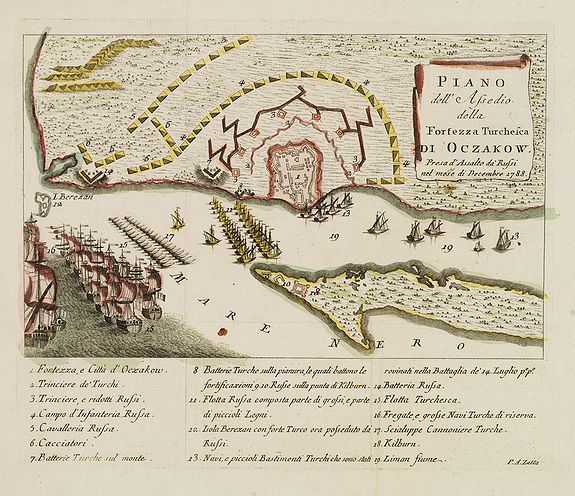 PIANO
dell' Assedio
della
Fortezza Turchesca
DI OCZAKOW.
Presa d'Assalto da' Russi
nel mese di Decembre 1788.
I. Berezan
12
MARE NERO
1. Fortezza, e Città d' Oczakow.
2. Trinciere de' Turchi.
3. Trinciere, e ridotti Russi.
4. Campo d'Infanteria Russa.
5. Cavalleria Russa.
6. Cacciatori.
7. Batterie Turche sul monte.
8 Batterie Turche sulla pianura, le quali battono le
fortificazioni 9.10 Russe sulla punta di Kilburn.
11. Flotta Russa composta parte di grossi, e parte
di piccioli Legni.
12. Isola Berezan con forte Turco ora posseduto da
Russi.
13. Navi, e piccioli Bastimenti Turchi che sono stati
rovinati nella Battaglia de' 14. Luglio p.p.
14. Batteria Russa.
15. Flotta Turchesca.
16. Fregate, e grosse Navi Turche di riserva.
17. Scialuppe Cannoniere Turche.
18. Kilburn.
19. Liman fiume.
P. A. Zatta